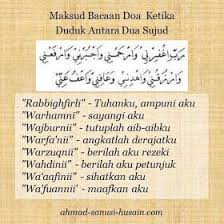 Maksud Bacaan Doa Ketika
Duduk Antara Dua Sujud
رَبِّ اغْفِرْلِيْ وَارْحَمْنِيْ وَاجْبُرْنِيْ وَارْفَعْنِيْ
وَارْزُقْنِيْ وَاهْدِنِيْ وَعَافِنِيْ وَاعْفُ عَنِّيْ
"Rabbighfirli" - Tuhanku, ampuni aku
"Warhamni" - sayangi aku
"Wajburnii" - tutuplah aib-aibku
"Warfa'nii" - angkatlah derajatku
"Warzuqnii" - berilah aku rezeki
"Wahdinii" - berilah aku petunjuk
"Wa'aafinii" - sihatkan aku
"Wa'fuannii' - maafkan aku
ahmad-sanusi-husain.com